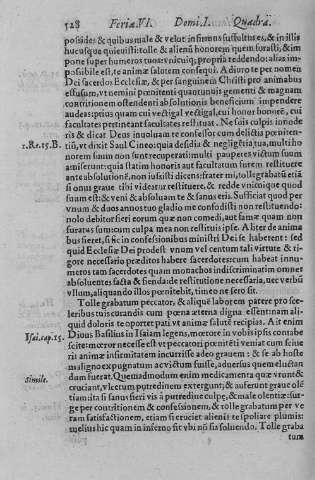 528 Feria. VI. Domi. I. Quadra.
possides & quibus male & velut infirmus sustultires, & in illis
hucusque quieuisti: tolle & alienũ honorem quem forasti, & im
pone super humeros tuos: vnicuiq; propria reddendo: alias im-
possibile est, te animæ salutem consequi. A diuo te per nomen
Dei sacerdos Ecclesiæ, & per sanguinem Christi pro animabus
effusum, vt nemini pœnitenti quantumuis gementi & magnam
contritionem ostendenti absolutionis beneficium impendere
audeas: prius quam cui vectigal vectigal, cui honor honorẽ, cui
facultates pertineant facultates restituat. Ne suis culpis innode
ris & dicat Deus
1. Re. 15. B. tiũ, vt dixit Saul Cineo: quia desidia & negligẽtia tua, multi ho
norem suum non sunt recuperati: multi pauperes victum suum
amiserunt: quia statim honoris aut facultatum suarem restituere
ante absolutionẽ, non iussisti: dicens: frater mi, tolle grabatũ etiã
si onus graue tibi videatur restituere, & redde vnicuique quod
suum est: & veni & absoluam te & sanus eris. Sufficiat quod per
vnum & duos annos tuo gladio me confodisti non restituendo:
nolo debitor fieri eorum quæ non comedi, aut famæ quam non
furatus sum: cum culpa mea non restituis ipse. Aliter de anima
bus fieret, si sic in confessionibus ministri Dei se haberent: sed
quid Ecclesiæ Dei prodest vnum vel centum tali virtute & ri-
gore necessario præditos habere sacerdotes: cum habeat innu-
meros tam sacerdotes quam monachos indiscriminatim omnes
absoluentes facta & fienda de restitutione necessaria, nec verbũ
vllum, aliquando illos pœnitebit, timeo ne sero sit.
Tolle grabatum peccator, & aliquẽ laborem patere pro sce-
leribus tuis curandis cum pœna æterna digna essent: nam ali-
quid doloris te oportet pati vt animæ salutẽ recipias. Ait enim
Isai. cap. 15. Diuus Basilius in Isaiam legens, mœror in vobis ipsis contabe
scite: mœror necesse est vt peccatori pœnitẽti veniat cum sciue
rit animæ infirmitatem incurrisse adeo grauem: & se ab hoste
maligno expugnatum ac victum fuisse, aduersus quem eluctan
Simile. dum fuerat. Quemadmodum enim medicamenta quæ vrunt &
cruciant, vlcerum putredinem extergunt; & auferunt graue olẽ
tiam: ita si sanus fieri vis à putredine culpæ, & male olentiæ: sur-
ge per contritionem & confessionem, & tolle grabatum per ve
ram satisfactionem, etiam si cruciet alienũ te ipoliare plumis:
melius hic quam in inferno sit vbi nõ sis soluendo. Tolle graba
tum